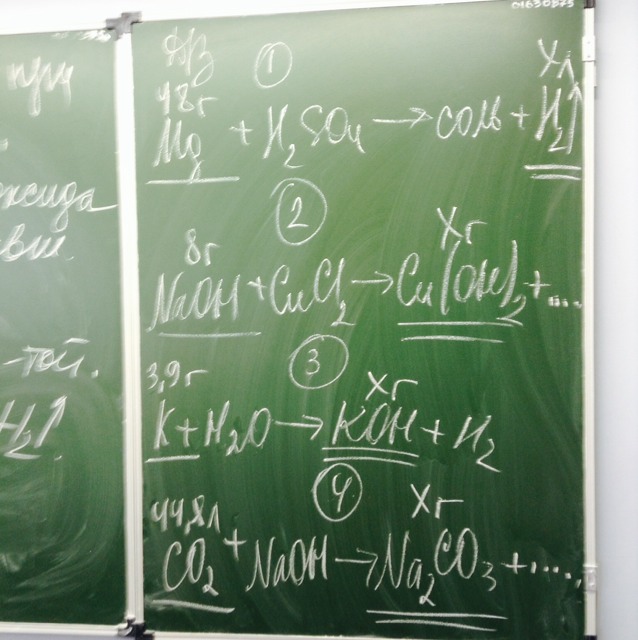 при
оксида
-той.
H₂↑
01630873
ДЗ
①
48г
Xл
Mg + H₂SO₄ → соль + H₂↑
②
8г
Xг
NaOH + CuCl₂ → Cu(OH)₂ + ...
③
3,9г
Xг
K + H₂O → KOH + H₂
④
44,8л
Xг
CO₂ + NaOH → Na₂CO₃ + ....